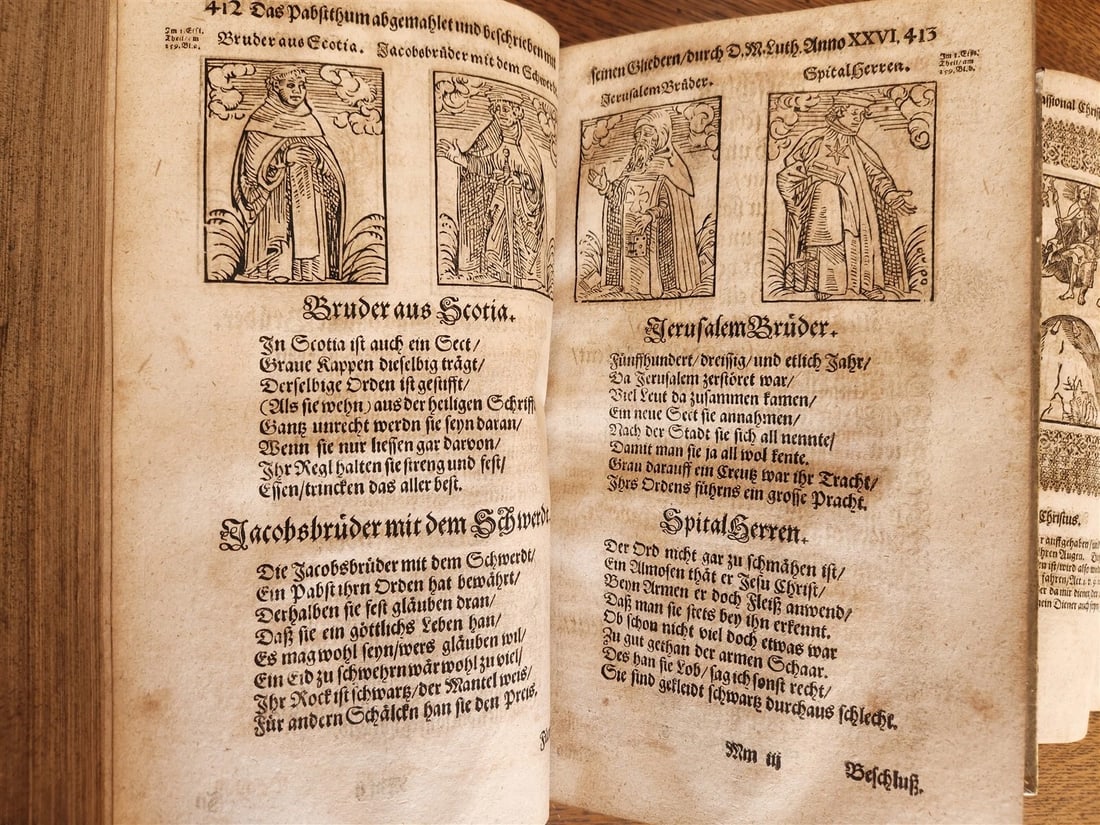 412 Das Pabstthum abgemahlet und beschrieben mit
Im 1. Eisl.
Theil/am
159. Bl. b.
Bruder aus Scotia. Jacobsbrüder mit dem Schwerdt
Bruder aus Scotia.
In Scotia ist auch ein Sect/
Graue Kappen dieselbig trägt/
Derselbige Orden ist gestifft/
(Als sie wehn) aus der heiligen Schrifft
Gantz unrecht werdn sie seyn daran/
Wenn sie nur liessen gar darvon/
Ihr Regl halten sie streng und fest/
Essen/trincken das aller best.
Jacobsbrüder mit dem Schwerdt.
Die Jacobsbrüder mit dem Schwerdt/
Ein Pabst ihrn Orden hat bewährt/
Derhalben sie fest gläuben dran/
Daß sie ein göttlichs Leben han/
Es mag wohl seyn/wers gläuben wil/
Ein Eid zu schwehrn wär wohl zu viel/
Ihr Rock ist schwartz/der Mantel weis/
Für andern Schälckn han sie den Preis.
seinen Gliedern/durch D. M. Luth. Anno XXVI. 413
Im 1. Eisl.
Theil/am
159. Bl. b.
Jerusalem Brüder. Spital Herren.
Jerusalem Brüder.
Fünffhundert/dreissig/und etlich Jahr/
Da Jerusalem zerstöret war/
Viel Leut da zusammen kamen/
Ein neue Sect sie annahmen/
Nach der Stadt sie sich all nennte/
Damit man sie ja all wol kente.
Grau darauff ein Creutz war ihr Tracht/
Ihrs Ordens führns ein grosse Pracht.
Spital Herren.
Der Ord nicht gar zu schmähen ist/
Ein Almosen thät er Jesu Christ/
Beyn Armen er doch Fleiß anwend/
Daß man sie stets bey ihn erkennt.
Ob schon nicht viel doch etwas war
Zu gut gethan der armen Schaar.
Des han sie Lob/sag ich sonst recht/
Sie sind gekleidt schwartz durchaus schlecht.
Mm iij
Beschluß.
Christus.